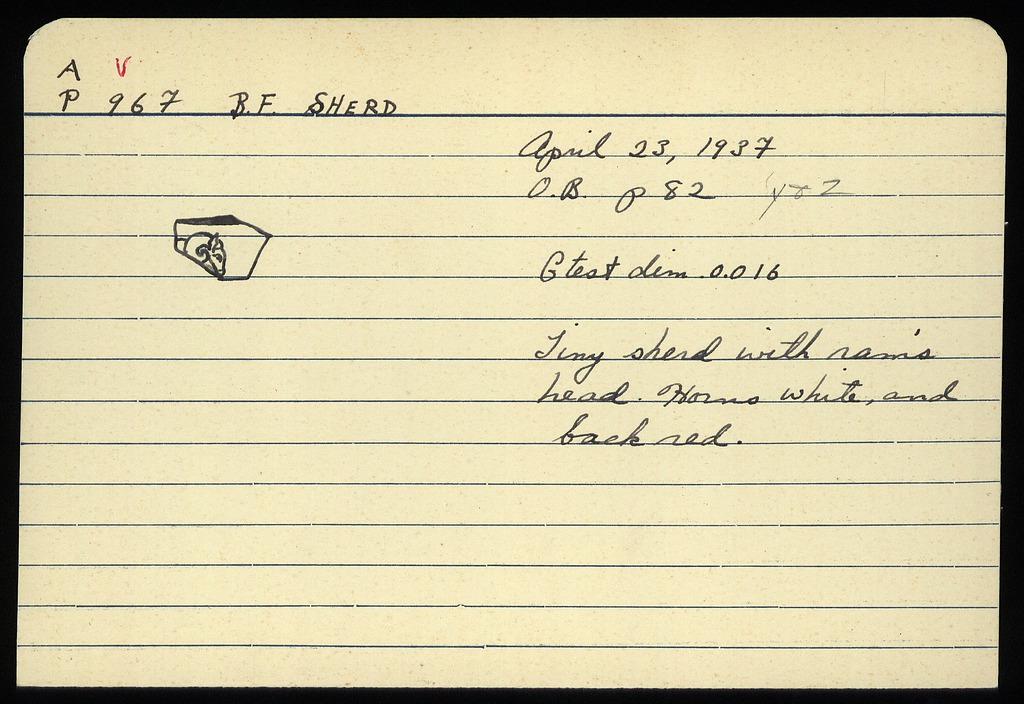 A V
P 967 B.F. SHERD
April 23, 1937
O.B. p 82
Gtest dim. 0.016
Tiny sherd with ram's
head. Horns white, and
back red.